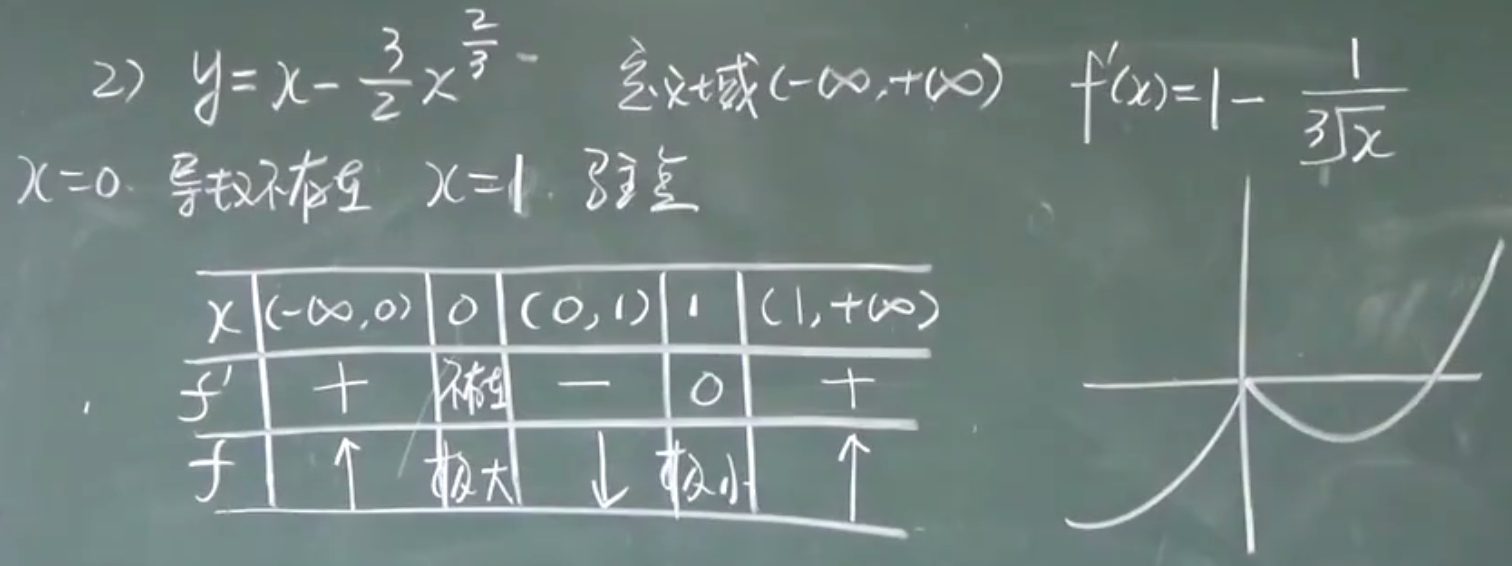 2) y=x-\frac{3}{2}x^{\frac{2}{3}} 定义域(-∞,+∞) f'(x)=1-\frac{1}{\sqrt[3]{x}}
x=0. 导数不存在 x=1. 驻点
x (-∞,0) 0 (0,1) 1 (1,+∞)
f' + 不存在 - 0 +
f ↑ 极大 ↓ 极小 ↑